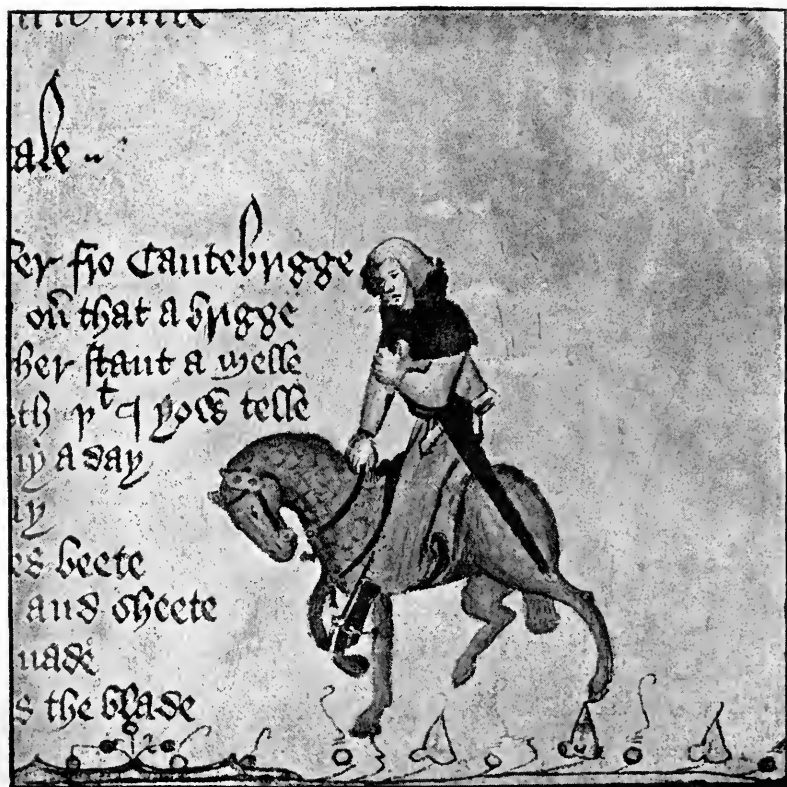 ale
fro Cantebrigge
on that a brigge
ther stant a melle
oth þt I yow telle
ny a day
ay
es beete
and sheete
nade
s the blade